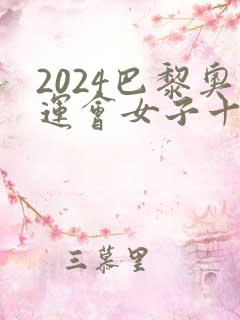 2024巴黎奧
運會女子十
三慕里